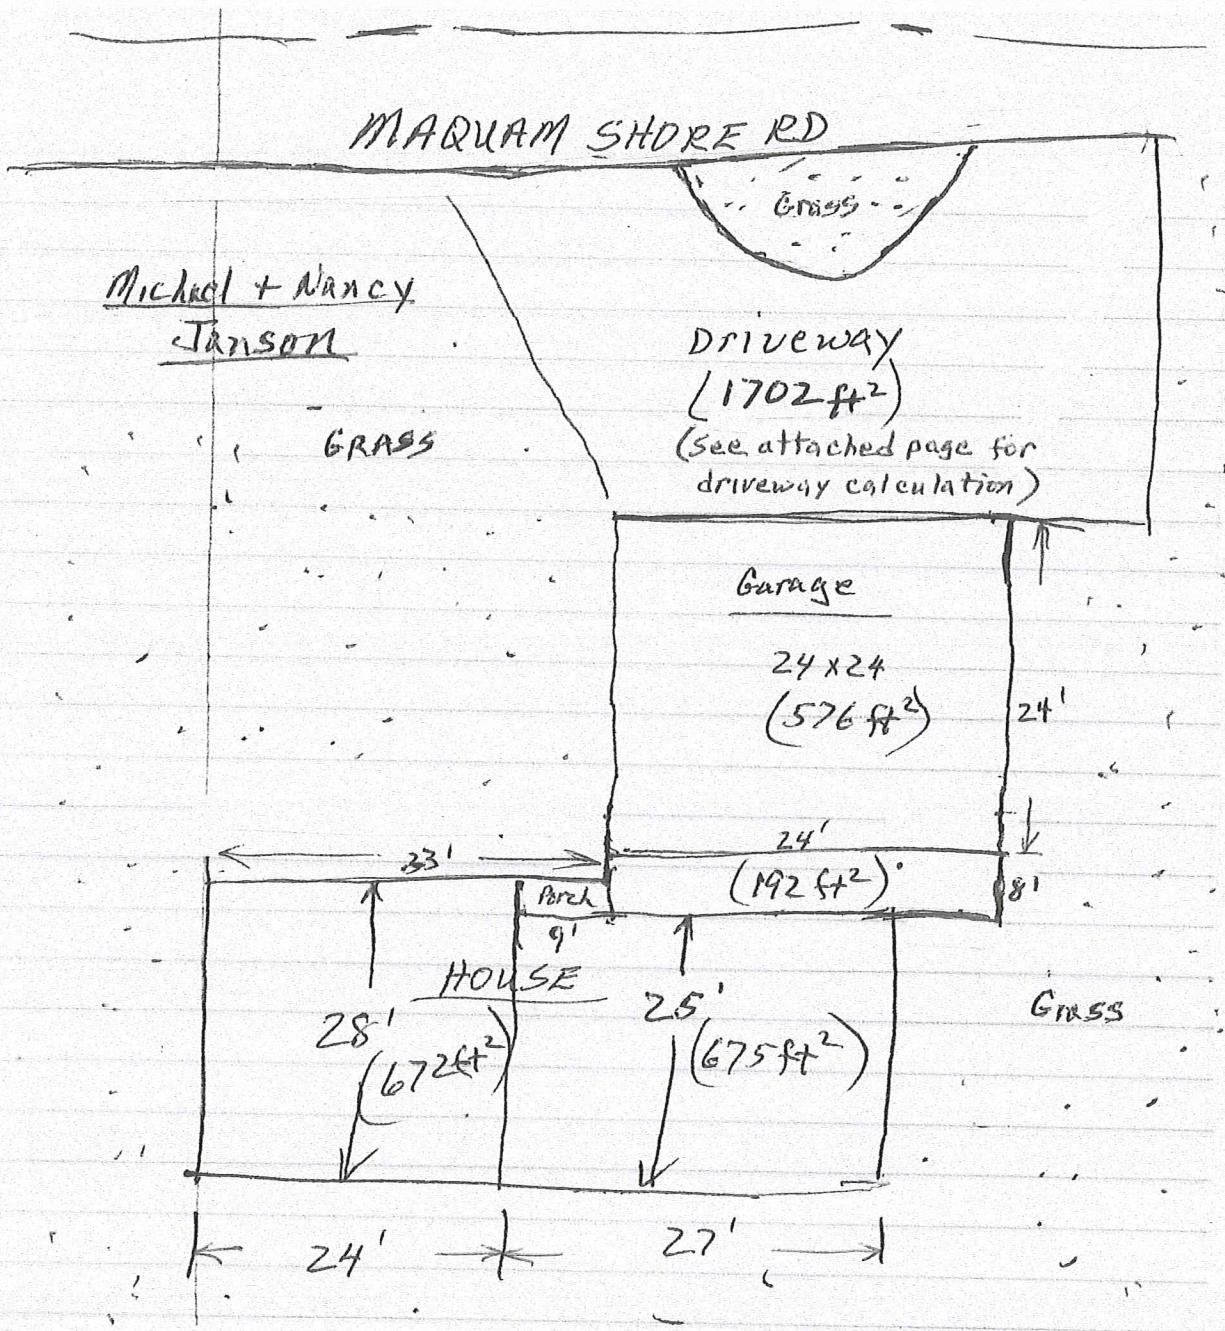 MAQUAM SHORE RD
Grass
Michael + Nancy
Janson
Driveway
(1702 ft²)
(see attached page for
driveway calculation)
GRASS
Garage
24 x 24
(576 ft²)
24'
24'
33'
(192 ft²)
8'
Porch
9'
HOUSE
28'
(672 ft²)
25'
(675 ft²)
Grass
24'
27'